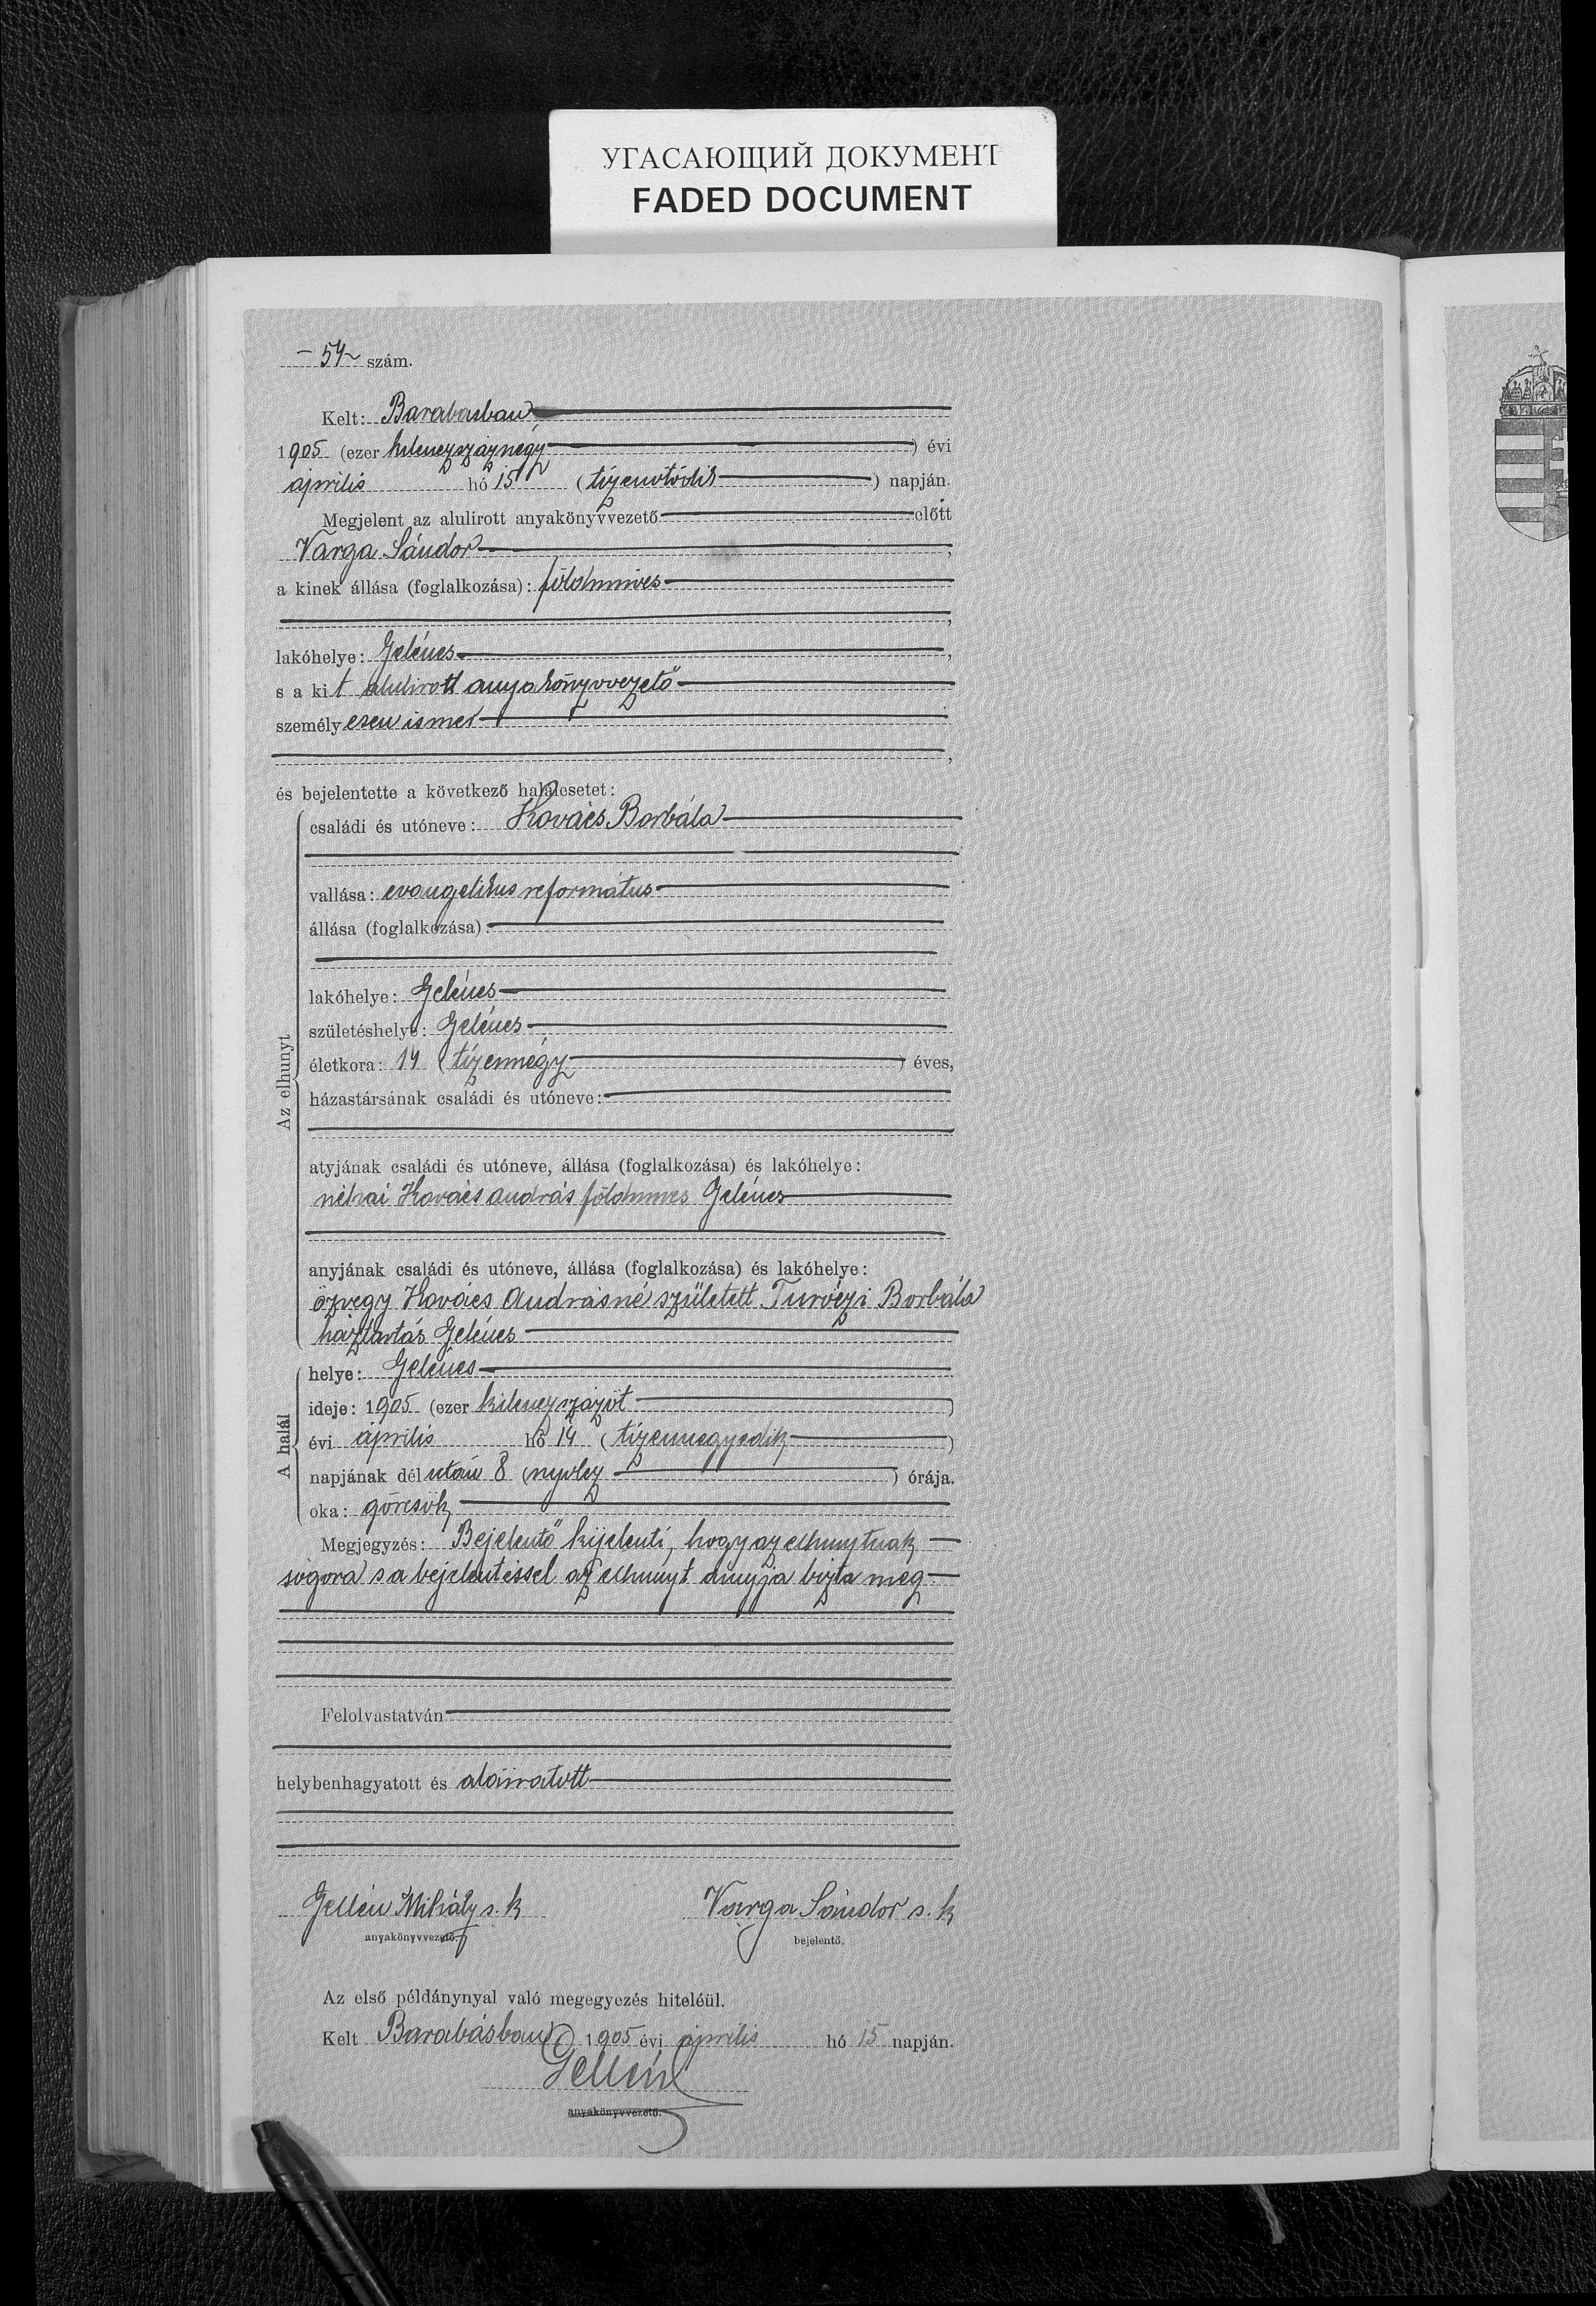 УГАСАЮЩИЙ ДОКУМЕНТ
FADED DOCUMENT
– 54 ~ szám.
Kelt: Barabásban
1905 (ezer kilenczszáznégy ) évi
április hó 15 (tizenötödik ) napján.
Megjelent az alulirott anyakönyvvezető előtt
Varga Sándor ,
a kinek állása (foglalkozása): földmives
,
lakóhelye: Gelénes ,
s a kit alulirott anyakönyvvezető
személyesen ismer
,
és bejelentette a következő halálesetet:
Az elhunyt
családi és utóneve: Kovács Borbála
vallása: evangelikus református
állása (foglalkozása):
lakóhelye: Gelénes
születéshelye: Gelénes
életkora: 14 (tizennégy ) éves,
házastársának családi és utóneve:
atyjának családi és utóneve, állása (foglalkozása) és lakóhelye:
néhai Kovács András földmives Gelénes
anyjának családi és utóneve, állása (foglalkozása) és lakóhelye:
özvegy Kovács Andrásné született Turóczi Borbála
háztartás Gelénes
A halál
helye: Gelénes
ideje: 1905 (ezer kilenczszázöt )
évi április hó 14 (tizennegyedik )
napjának délután 8 (nyolcz ) órája.
oka: görcsök
Megjegyzés: Bejelentő kijelenti, hogy az elhunytnak
sógora s a bejelentéssel az elhunyt annyja bizta meg.
Felolvastatván
helybenhagyatott és aláiratott
Gellén Mihály s. k Varga Sándor s. k
anyakönyvvezető. bejelentő.
Az első példánynyal való megegyezés hiteléül.
Kelt Barabásban 1905 évi április hó 15 napján.
Gellén
anyakönyvvezető.